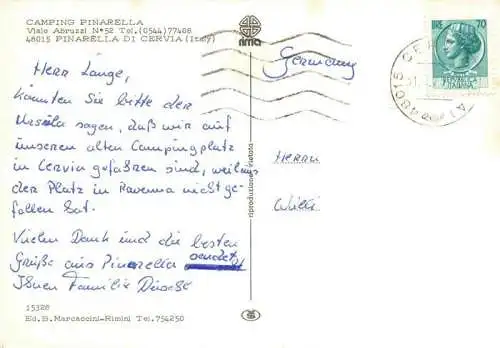 CAMPING PINARELLA
Viale Abruzzi N° 52 Tel. (0544) 77408
48015 PINARELLA DI CERVIA (Italy)
rima
Germany
IRE 70
48015 CE
Herr Lange,
könnten Sie bitte der
Ursula sagen, daß wir auf
unseren alten Campingplatz
in Cervia gefahren sind, weil uns
der Platz in Ravenna nicht ge-
fallen hat.
Vielen Dank und die besten
Grüße aus Pinarella sendet
Ihnen Familie
Herrn
Willi
riproduzione vietata
15328
Ed. B. Marcaccini-Rimini Tel. 754250